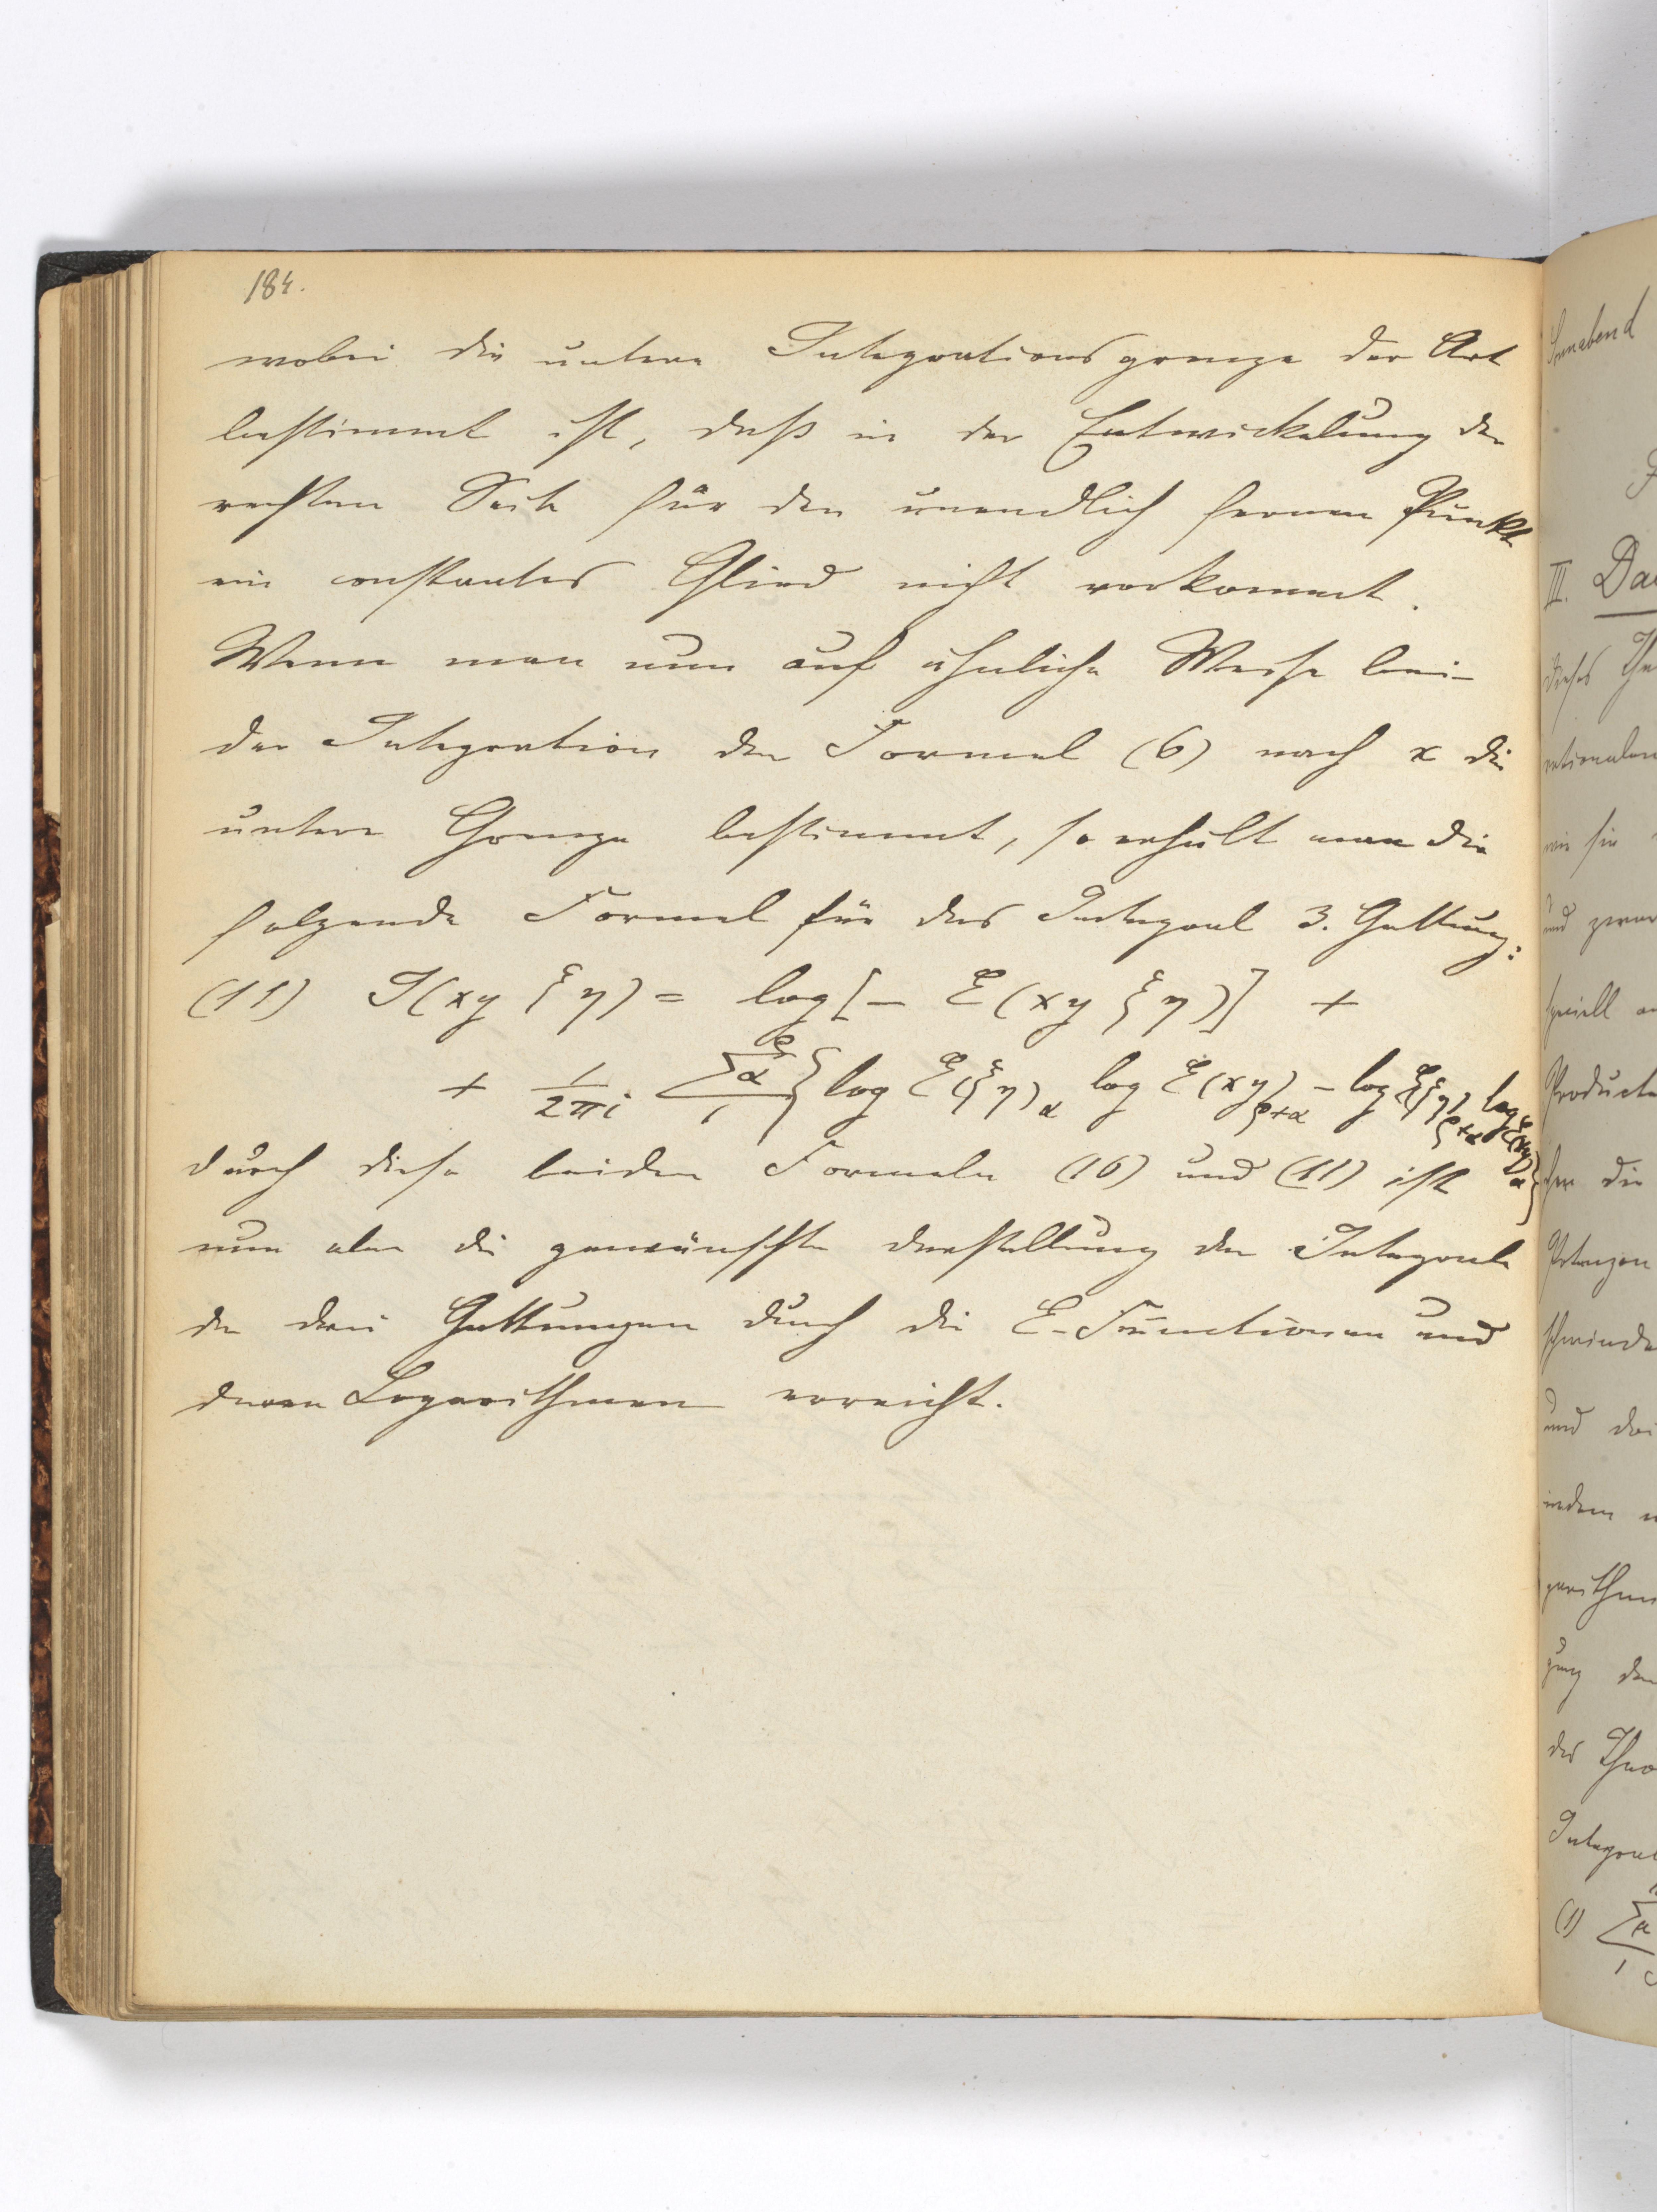 184.
wobei die untere Integrationsgrenze der Art
bestimmt ist, daß in der Entwickelung der
rechten Seite für den unendlich fernen Punkt
ein constantes Glied nicht vorkommt.
Wenn man nun auf ähnliche Weise bei
der Integration der Formel (6) nach x die
untere Grenze bestimmt, so erhält man die
folgende Formel für das Integral 3. Gattung:
(11) J(xy ξη) = log[– E(xy ξη)] +
+ 1/2πi Σα {log E(ξη)α log E(xy)ρ+α – log E(ξη)ρ+α log E(xy)α}
durch diese beiden Formeln (10) und (11) ist
nun aber die gewünschte Darstellung der Integrale
der drei Gattungen durch die E-Functionen und
deren Logarithmen erreicht.
Sonnabend
III. Da
dieses The
rationalen
wie sie
und zwar
speciell
Producte
die
Potenzen
schwinde
und
indem
garithm
gung der
des Theo
Integral
(1) Σα